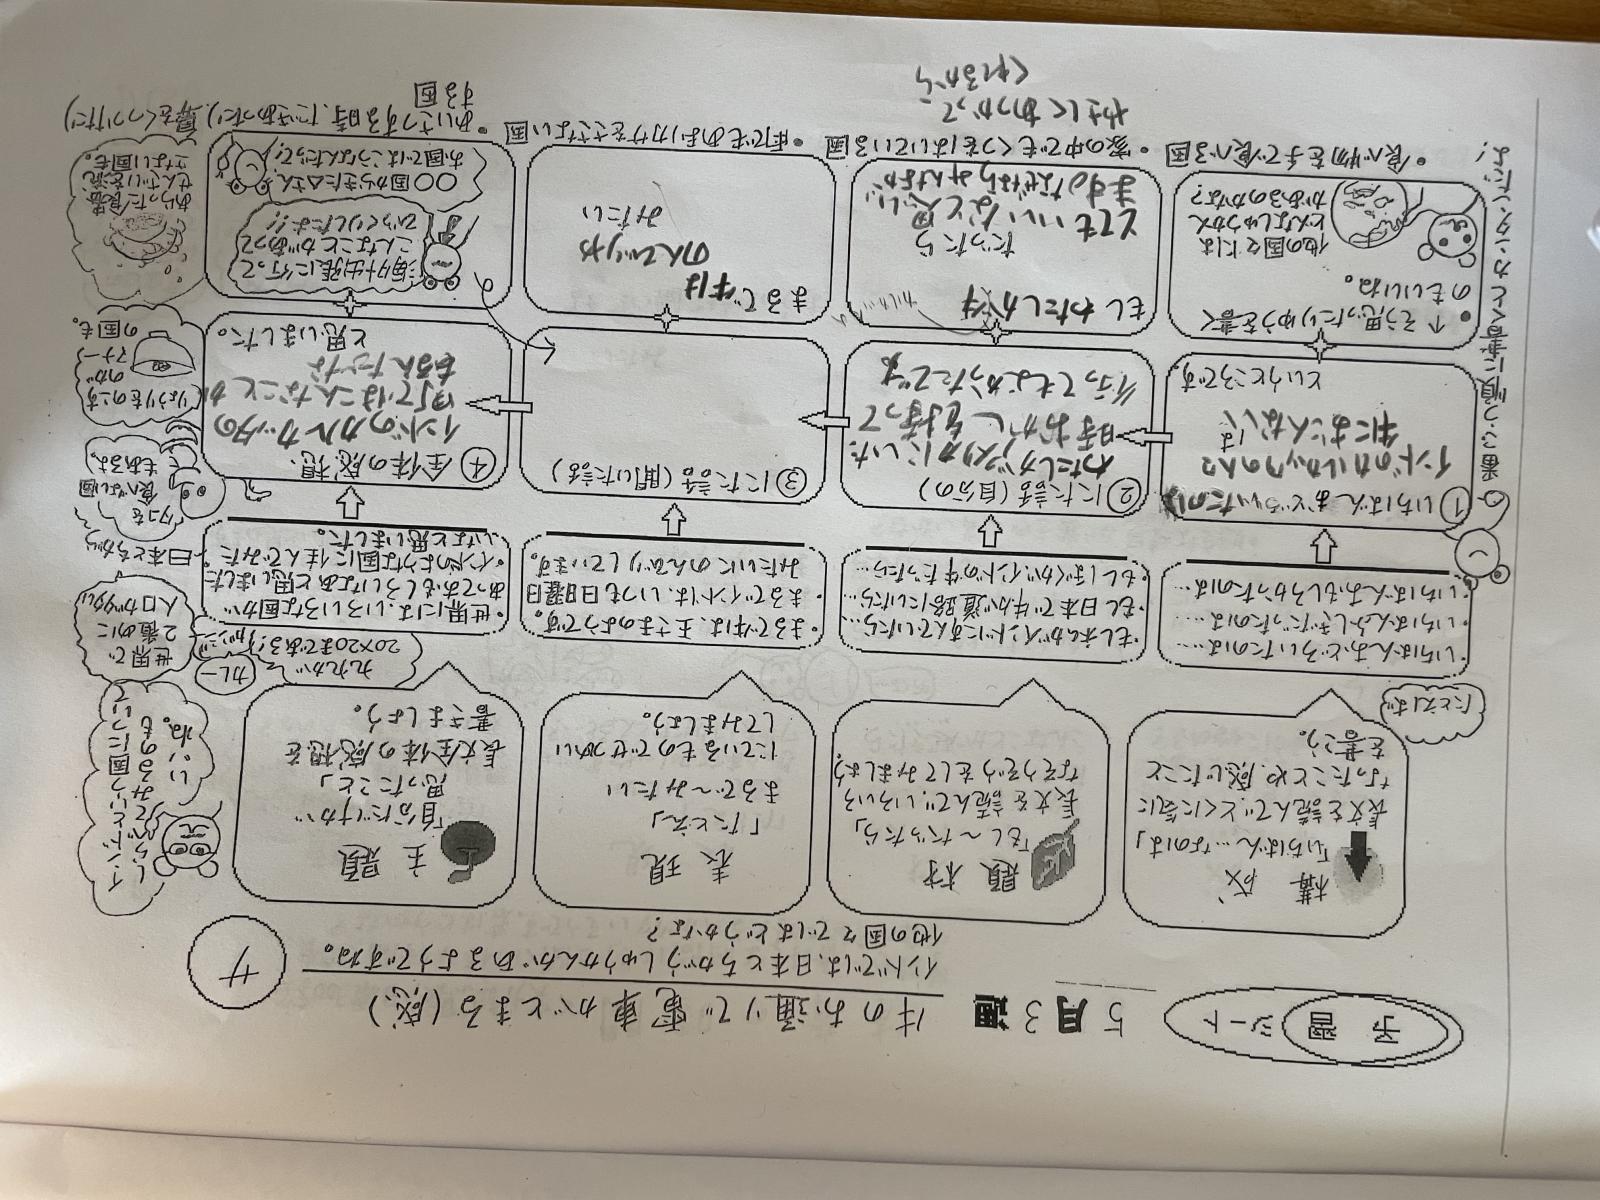 予習
シート
5月3週
牛のお通りで電車がとまる(感)
サ
インドでは、日本とちがうしゅうかんがあるようですね。
他の国々ではどうかな?
構成
「いちばん…なのは」
長文を読んで、とくに気に
なったことや、感じたこと
を書こう。
題材
「もし~だったら」
長文を読んで、いろいろ
なそうぞうをしてみましょう
表現
「たとえ」
まるで~みたい
にているものでせつめい
してみましょう。
主題
「自分だけが
思ったこと」
長文全体の感想を
書きましょう。
インドという国について
しらべてみるのも
いいね。
たとえば
・いちばんおどろいたのは…
・いちばんふしぎだったのは…
・いちばんおもしろかったのは…
・もし私がインドにすんでいたら…
・もし日本で牛が道路にいたら…
・もしぼくがインドの牛だったら…
・まるで牛は、王さまのようです。
・まるでインドは、いつも日曜日
みたいにのんびりしています。
九九が
20×20まである!
カレー
・世界には、いろいろな国が
あっておもしろいなあと思いました
・インドのような国に住んでみた
いなと思いました。
世界で
2番めに
人口が多い
日本とちがう
①いちばんおどろいたのは
インドのカルカッタの人は
牛におこらない
というところです
②にた話(自分の)
わたしがアメリカにいた
時おかしを持って
行ってもよかったです
③にた話(聞いた話)
④全体の感想、
インドのカルカッタの
町ではこんなことが
あるんだな
と思いました。
タコを
食べない国
もあるよ。
りょうりをのこす
のが
マナー
の国も。
番ごう順に書くとカンタンだよ!
・↑そう思ったりゆうを書く
のもいいね。
他の国々には
どんなしゅうかん
があるのかな?
もしわたしが牛
だったら
とてもいいなと思い
ますなぜならみんなが
やさしくあつかって
くれるから
まるで牛は
のんびりや
みたい
海外出張に行って
こんなことがあって
びっくりしたよ!!
○○国からきた△△さん、
お国ではこうなんだって!
あらった食器
せんざいを流
さない国も。
・食べ物を手で食べる国
・家の中でもくつをはいている国
・雨でもあまりカサをささない国
・あいさつする時、だきあったり、鼻をくっつけたり
する国